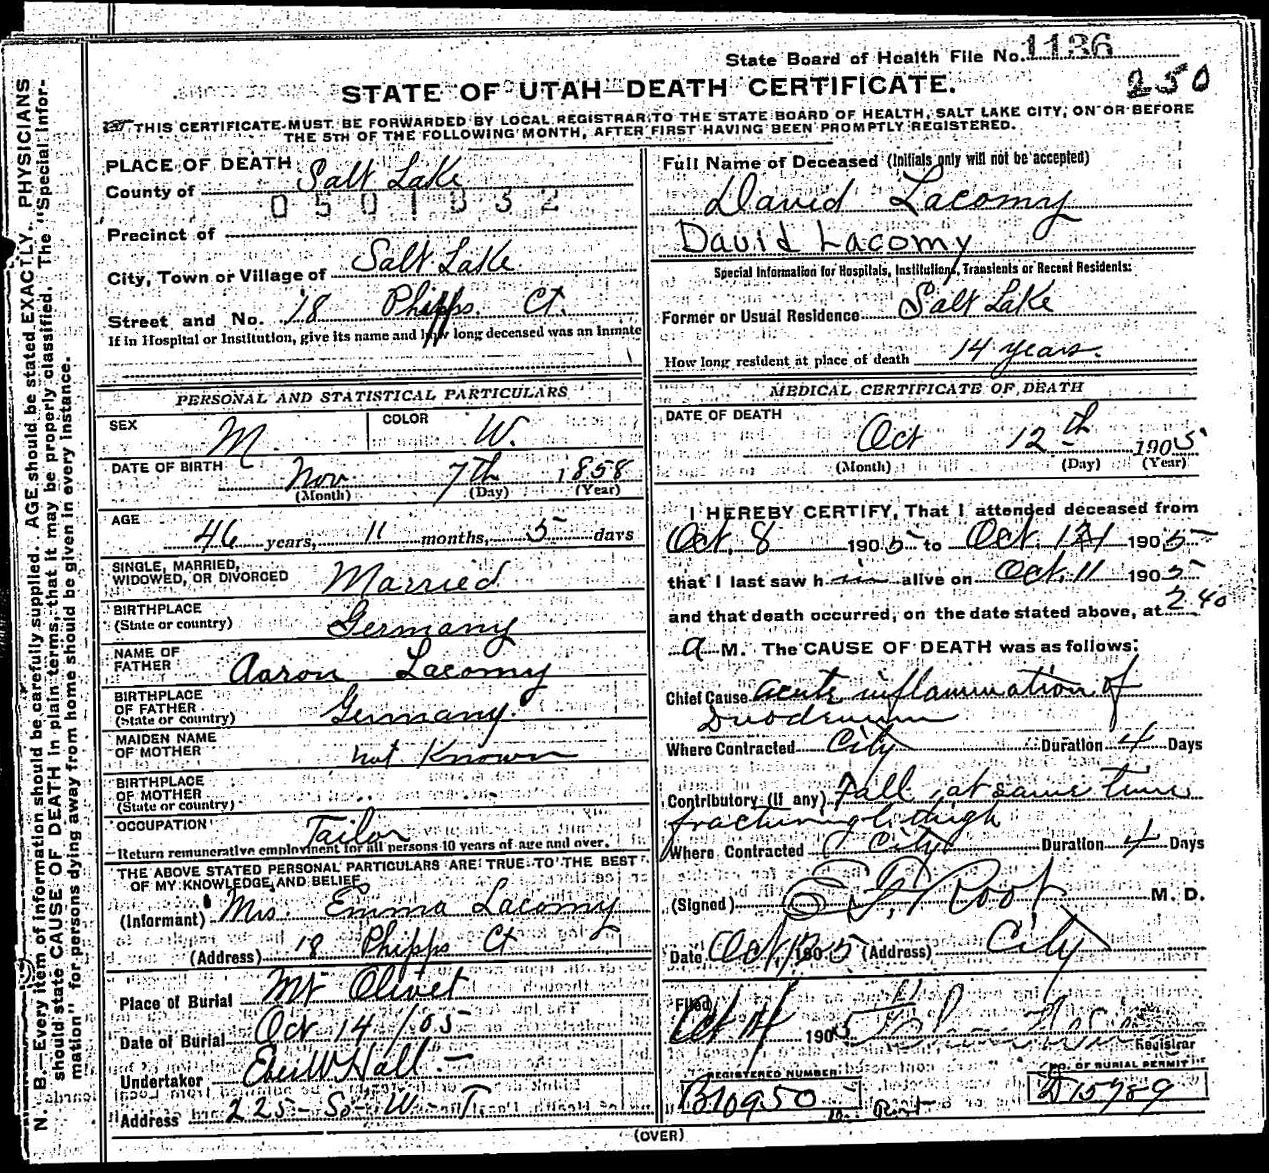 State Board of Health File No. 1136
250
STATE OF UTAH—DEATH CERTIFICATE.
THIS CERTIFICATE MUST BE FORWARDED BY LOCAL REGISTRAR TO THE STATE BOARD OF HEALTH, SALT LAKE CITY, ON OR BEFORE
THE 5TH OF THE FOLLOWING MONTH, AFTER FIRST HAVING BEEN PROMPTLY REGISTERED.
N. B.—Every item of information should be carefully supplied. AGE should be stated EXACTLY. PHYSICIANS
should state CAUSE OF DEATH in plain terms, that it may be properly classified. The "Special Infor-
mation" for persons dying away from home should be given in every instance.
PLACE OF DEATH
County of Salt Lake
0501832
Precinct of
City, Town or Village of Salt Lake
Street and No. 18 Phipps. Ct.
If in Hospital or Institution, give its name and how long deceased was an Inmate
PERSONAL AND STATISTICAL PARTICULARS
SEX M. COLOR W.
DATE OF BIRTH Nov. 7th 1858
(Month) (Day) (Year)
AGE 46 years, 11 months, 5 days
SINGLE, MARRIED,
WIDOWED, OR DIVORCED Married
BIRTHPLACE
(State or country) Germany
NAME OF
FATHER Aaron Lacomy
BIRTHPLACE
OF FATHER
(State or country) Germany.
MAIDEN NAME
OF MOTHER not Known
BIRTHPLACE
OF MOTHER
(State or country)
OCCUPATION Tailor
Return remunerative employment for all persons 10 years of age and over.
THE ABOVE STATED PERSONAL PARTICULARS ARE TRUE TO THE BEST
OF MY KNOWLEDGE AND BELIEF
(Informant) Mrs. Emma Lacomy
(Address) 18 Phipps Ct
Place of Burial Mt Olivet
Date of Burial Oct 14/05
Undertaker Eber W Hall
Address 225 So W T
Full Name of Deceased (Initials only will not be accepted)
David Lacomy
David Lacomy
Special Information for Hospitals, Institutions, Transients or Recent Residents:
Former or Usual Residence Salt Lake
How long resident at place of death 14 years.
MEDICAL CERTIFICATE OF DEATH
DATE OF DEATH
Oct 12th 1905
(Month) (Day) (Year)
I HEREBY CERTIFY, That I attended deceased from
Oct. 8 1905 to Oct. 1905
that I last saw h im alive on Oct. 11 1905
and that death occurred, on the date stated above, at 2.40
a M. The CAUSE OF DEATH was as follows:
Chief Cause acute inflammation of
Duodenum
Where Contracted City Duration 4 Days
Contributory (if any) Fall, at same time
fracturing l. thigh
Where Contracted City Duration 4 Days
(Signed) Root M. D.
Date Oct. 1905 (Address) City
Filed
Oct 14 1905
Registrar
REGISTERED NUMBER NO. OF BURIAL PERMIT
B10950 D15789
(OVER)